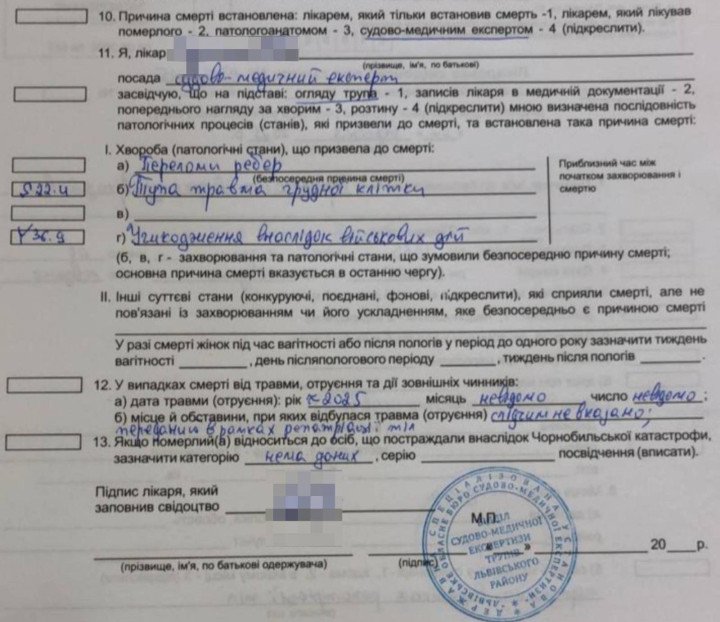 10. Причина смерті встановлена: лікарем, який тільки встановив смерть -1, лікарем, який лікував
померлого - 2, патологоанатомом - 3, судово-медичним експертом - 4 (підкреслити).
11. Я, лікар
(прізвище, ім'я, по батькові)
посада судово-медичний експерт
засвідчую, що на підставі: огляду трупа - 1, записів лікаря в медичній документації - 2,
попереднього нагляду за хворим - 3, розтину - 4 (підкреслити) мною визначена послідовність
патологічних процесів (станів), які призвели до смерті, та встановлена така причина смерті:
І. Хвороба (патологічні стани), що призвела до смерті:
а) Переломи ребер
(безпосередня причина смерті)
Приблизний час між
початком захворювання і
смертю
S 22.4 б) Тупа травма грудної клітки
в)
Y 36.9 г) Ушкодження внаслідок військових дій
(б, в, г - захворювання та патологічні стани, що зумовили безпосередню причину смерті;
основна причина смерті вказується в останню чергу).
ІІ. Інші суттєві стани (конкуруючі, поєднані, фонові, підкреслити), які сприяли смерті, але не
пов'язані із захворюванням чи його ускладненням, яке безпосередньо є причиною смерті
У разі смерті жінок під час вагітності або після пологів у період до одного року зазначити тиждень
вагітності , день післяпологового періоду , тиждень після пологів .
12. У випадках смерті від травми, отруєння та дії зовнішніх чинників:
а) дата травми (отруєння): рік 2025 місяць невідомо число невідомо;
б) місце й обставини, при яких відбулася травма (отруєння) слідчим не вказано;
переданий в рамках репатріації тіл
13. Якщо померлий(а) відноситься до осіб, що постраждали внаслідок Чорнобильської катастрофи,
зазначити категорію нема даних , серію посвідчення (вписати).
Підпис лікаря, який
заповнив свідоцтво
М.П.
" " 20 р.
(прізвище, ім'я, по батькові одержувача) (підпис)
СПЕЦІАЛІЗОВАНА УСТАНОВА
ЛЬВІВСЬКЕ ОБЛАСНЕ БЮРО СУДОВО-МЕДИЧНОЇ ЕКСПЕРТИЗИ
ВІДДІЛ
СУДОВО-МЕДИЧНОЇ
ЕКСПЕРТИЗИ
ТРУПІВ
ЛЬВІВСЬКОГО
РАЙОНУ